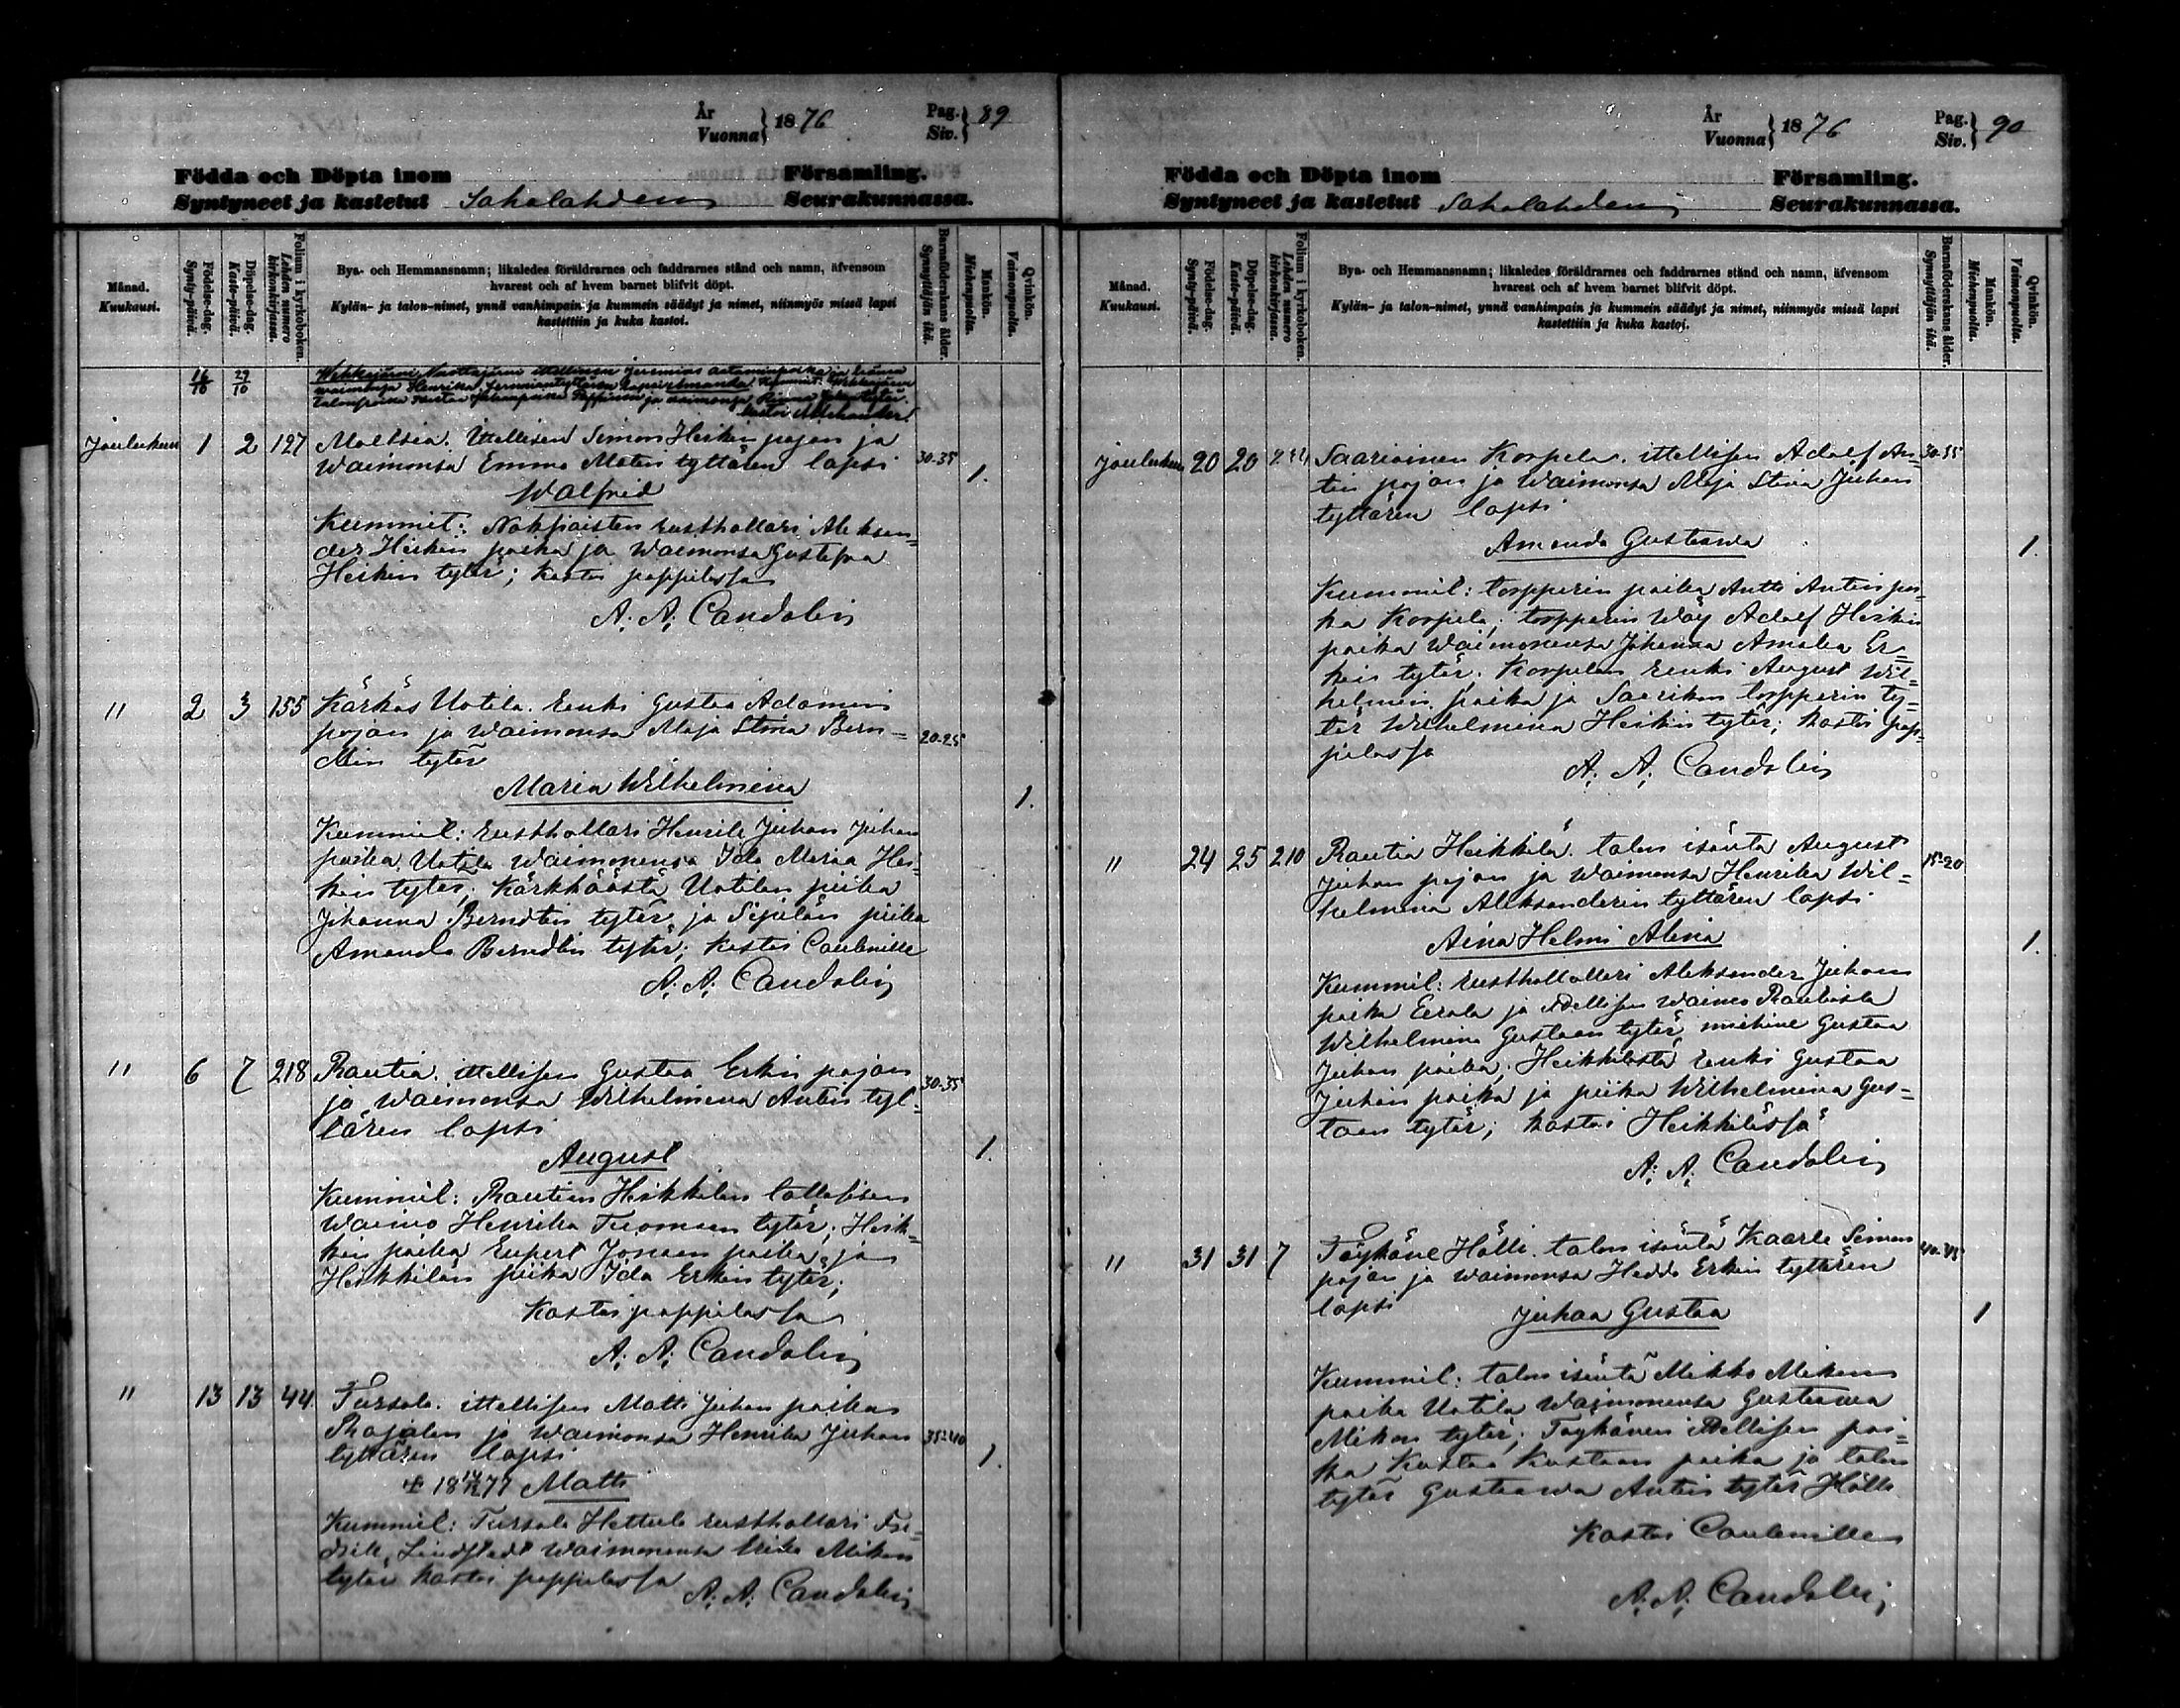 År
Vuonna } 1876
Pag.
Siv. } 89
Födda och Döpta inom Församling.
Syntyneet ja kastetut Sahalahden Seurakunnassa.
Månad.
Kuukausi.
Födelse-dag.
Synty-päivä.
Döpelse-dag.
Kaste-päivä.
Folium i kyrkoboken.
Lehden numero kirkonkirjassa.
Bya- och Hemmansnamn; likaledes föräldrarnes och faddrarnes stånd och namn, äfvensom
hvarest och af hvem barnet blifvit döpt.
Kylän- ja talon-nimet, ynnä vanhimpain ja kummein säädyt ja nimet, niinmyös missä lapsi
kastettiin ja kuka kastoi.
Barnföderskans ålder.
Synnyttäjän ikä.
Mankön.
Miehenpuolta.
Qvinkön.
Vaimonpuolta.
16/10 29/10
Joulukuu 1 2 127 Moltsia. Itellisen Simon Heikin pojan ja
waimonsa Emma Matin tyttären lapsi 30-35 1.
Walfrid
Kummit: Nakkaisten rusthollari Aleksan=
der Heikin poika ja waimonsa Gustafva
Heikin tytär; kastoi pappilassa
A. A. Candolin
" 2 3 155 Kärkäs Uotila. renki Gustaa Adamin
pojan ja waimonsa Maja Stina Bern= 20-25
dtin tytär
Maria Wilhelmina 1.
Kummit: rusthollari Henrik Juhan Juhan
poika Uotila waimonensa Ida Maria Hei-
kin tytär; Kärkkäästä Uotilan piika
Johanna Berndtin tytär ja Sipilän piika
Amanda Berndtin tytär; kastoi Caulenille
A. A. Candolin
" 6 7 218 Rautia. itellisen Gustaa Erkin pojan 30-35
ja waimonsa Wilhelmina Antin tyt-
tären lapsi
August 1.
Kummit: Rautian Heikkilän
waimo Henrika Tuomaan tytär; Heik-
kin poika Rupert Jonaan poika ja
Heikkilän piika Ida Erkin tytär;
kastoi pappilassa
A. A. Candolin
" 13 13 44 Tursola. itellisen Matti Juhan poikan
Rajalan ja waimonsa Henrika Juhan 35-40
tyttären lapsi 1.
1877 Matti
Kummit: Tursola Hettula rusthollari Fre-
drik Lindstedt waimonensa Mikon
tytär kastoi pappilassa A. A. Candolin
År
Vuonna } 1876
Pag.
Siv. } 90
Födda och Döpta inom Församling.
Syntyneet ja kastetut Sahalahden Seurakunnassa.
Månad.
Kuukausi.
Födelse-dag.
Synty-päivä.
Döpelse-dag.
Kaste-päivä.
Folium i kyrkoboken.
Lehden numero kirkonkirjassa.
Bya- och Hemmansnamn; likaledes föräldrarnes och faddrarnes stånd och namn, äfvensom
hvarest och af hvem barnet blifvit döpt.
Kylän- ja talon-nimet, ynnä vanhimpain ja kummein säädyt ja nimet, niinmyös missä lapsi
kastettiin ja kuka kastoi.
Barnföderskans ålder.
Synnyttäjän ikä.
Mankön.
Miehenpuolta.
Qvinkön.
Vaimonpuolta.
Joulukuu 20 20 Saarioinen Korpela. itellisen Adolf An-
tin pojan ja waimonsa Maja Stina Juhan
tyttären lapsi
Amanda Gustaava 1.
Kummit: torpperin poika Antti Antin poi-
ka Korpela; torpperin wäy Adolf Heikin
poika waimonensa Johanna Amalia Er=
kin tytär; Korpelan renki August Wil-
helmin poika ja Saarikon torpperin ty-
tär Wilhelmina Heikin tytär; kastoi pap-
pilassa
A. A. Candolin
" 24 25 210 Rautia Heikkilä. talon isäntä August 15-20
Juhan pojan ja waimonsa Henrika Wil-
helmina Aleksanderin tyttären lapsi
Aina Helmi Alina 1.
Kummit: rusthollari Aleksander Juhan
poika Eerola ja itellisen waimo Rautiasta
Wilhelmina Gustaan tytär miehine Gustaa
Juhan poika; Heikkilästä renki Gustaa
Juhan poika ja piika Wilhelmina Gus-
taan tytär; kastoi Heikkilässä
A. A. Candolin
" 31 31 7 Töyhäne Hölli. talon isäntä Kaarle Simon 40-45
pojan ja waimonsa Hedda Erkin tyttären
lapsi
Juhaa Gustaa 1
Kummit: talon isäntä Mikko Mikon
poika Uotila waimonensa Gustaava
Mikon tytär; Töyhänen itellisen poi-
ka Kustaa Kustaan poika ja talon
tytär Gustaava Antin tytär Hölli
kastoi Caulenille
A. A. Candolin